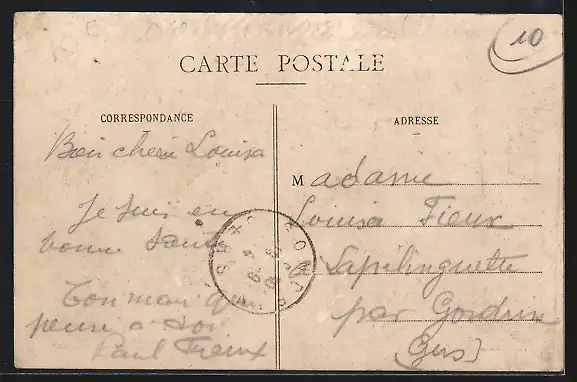 10
CARTE POSTALE
CORRESPONDANCE
ADRESSE
Bien chère Louisa
Je suis en
bonne santé
Ton mari qui
pense a toi
Paul Fieux
Madame
Louisa Fieux
a Lapilinguette
par Gondrin
(Gers)